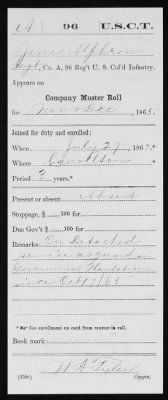 A | 96 | U.S.C.T.
James Alphron
Sergt., Co. A, 96 Reg't U. S. Col'd Infantry.
Appears on
Company Muster Roll
for Nov & Dec, 1863.
Joined for duty and enrolled:
When July 27, 1863.
Where
Period 3 years.*
Present or absent Absent
Stoppage, $ 100 for
Due Gov't $ 100 for
Remarks: On Detached
service as guard on
Government Plantation
since Oct 17/63
*See enrollment on card from muster-in roll.
Book mark:
(358c) Copyist.